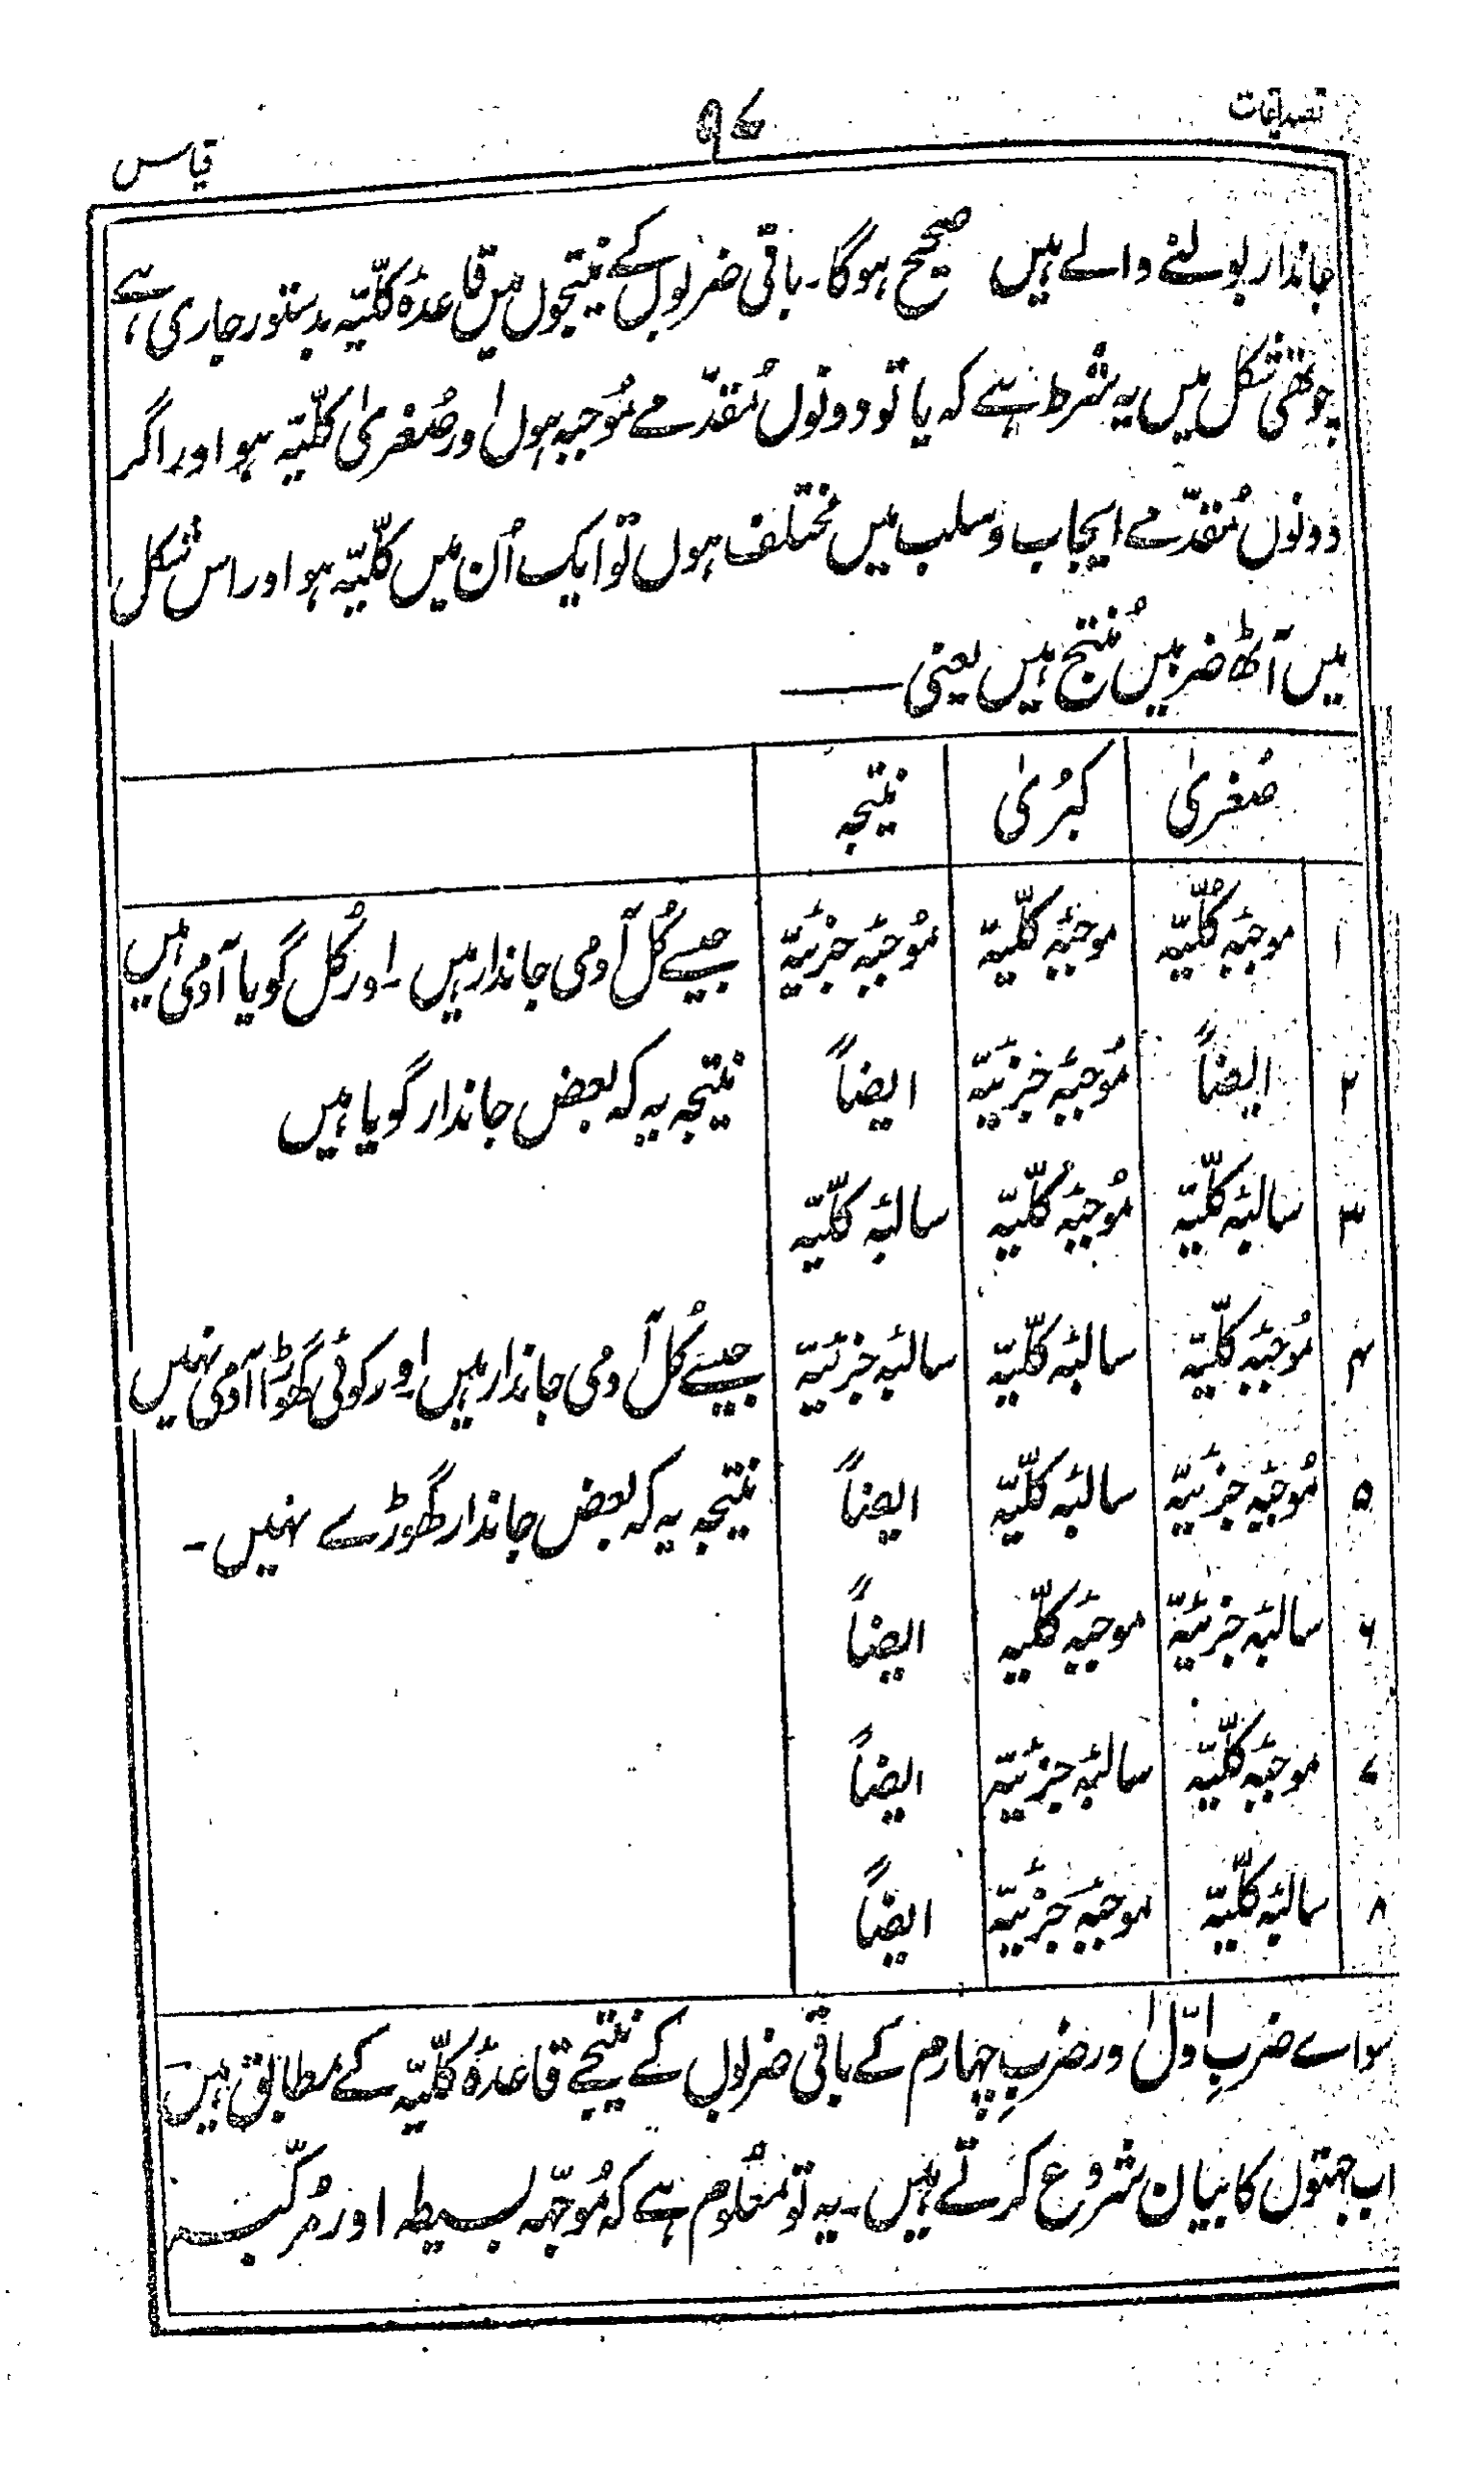 تصدیقات
۹۷
قیاس
جاندار بولنے والے ہیں صحیح ہوگا۔ باقی ضربوں کے نتیجوں میں قاعدۂ کلّیّہ بدستور جاری ہے
چوتھی شکل میں یہ شرط ہے کہ یا تو دونوں مُقدّمے مُوجبہ ہوں اور صُغریٰ کلّیّہ ہو اور اگر
دونوں مُقدّمے ایجاب و سلب میں مختلف ہوں تو ایک اُن میں کلّیّہ ہو اور اس شکل
میں آٹھ ضربیں مُنتج ہیں یعنی ——
صُغریٰ کُبریٰ نتیجہ
۱ موجبۂ کُلّیّہ موجبۂ کلّیّہ مُوجبۂ جزئیّہ جیسے کُل آدمی جاندار ہیں۔ اور کُل گویا آدمی ہیں
۲ ایضاً مُوجبۂ جزئیّہ ایضاً نتیجہ یہ کہ بعض جاندار گویا ہیں
۳ سالبۂ کلّیّہ مُوجبۂ کُلّیّہ سالبۂ کلّیّہ
۴ مُوجبۂ کلّیّہ سالبۂ کلّیّہ سالبۂ جزئیّہ جیسے کُل آدمی جاندار ہیں اور کوئی گھوڑا آدمی نہیں
۵ مُوجبۂ جزئیّہ سالبۂ کلّیّہ ایضاً نتیجہ یہ کہ بعض جاندار گھوڑے نہیں۔
۶ سالبۂ جزئیّہ موجبۂ کلّیّہ ایضاً
۷ موجبۂ کلّیّہ سالبۂ جزئیّہ ایضاً
۸ سالبۂ کلّیّہ موجبۂ جزئیّہ ایضاً
سواے ضربِ اوّل اور ضربِ چہارم کے باقی ضربوں کے نتیجے قاعدۂ کلّیّہ کے مطابق ہیں۔
اب جہتوں کا بیان شروع کرتے ہیں۔ یہ تو معلُوم ہے کہ مُوجّہہ بسیطہ اور مُرکّبہ